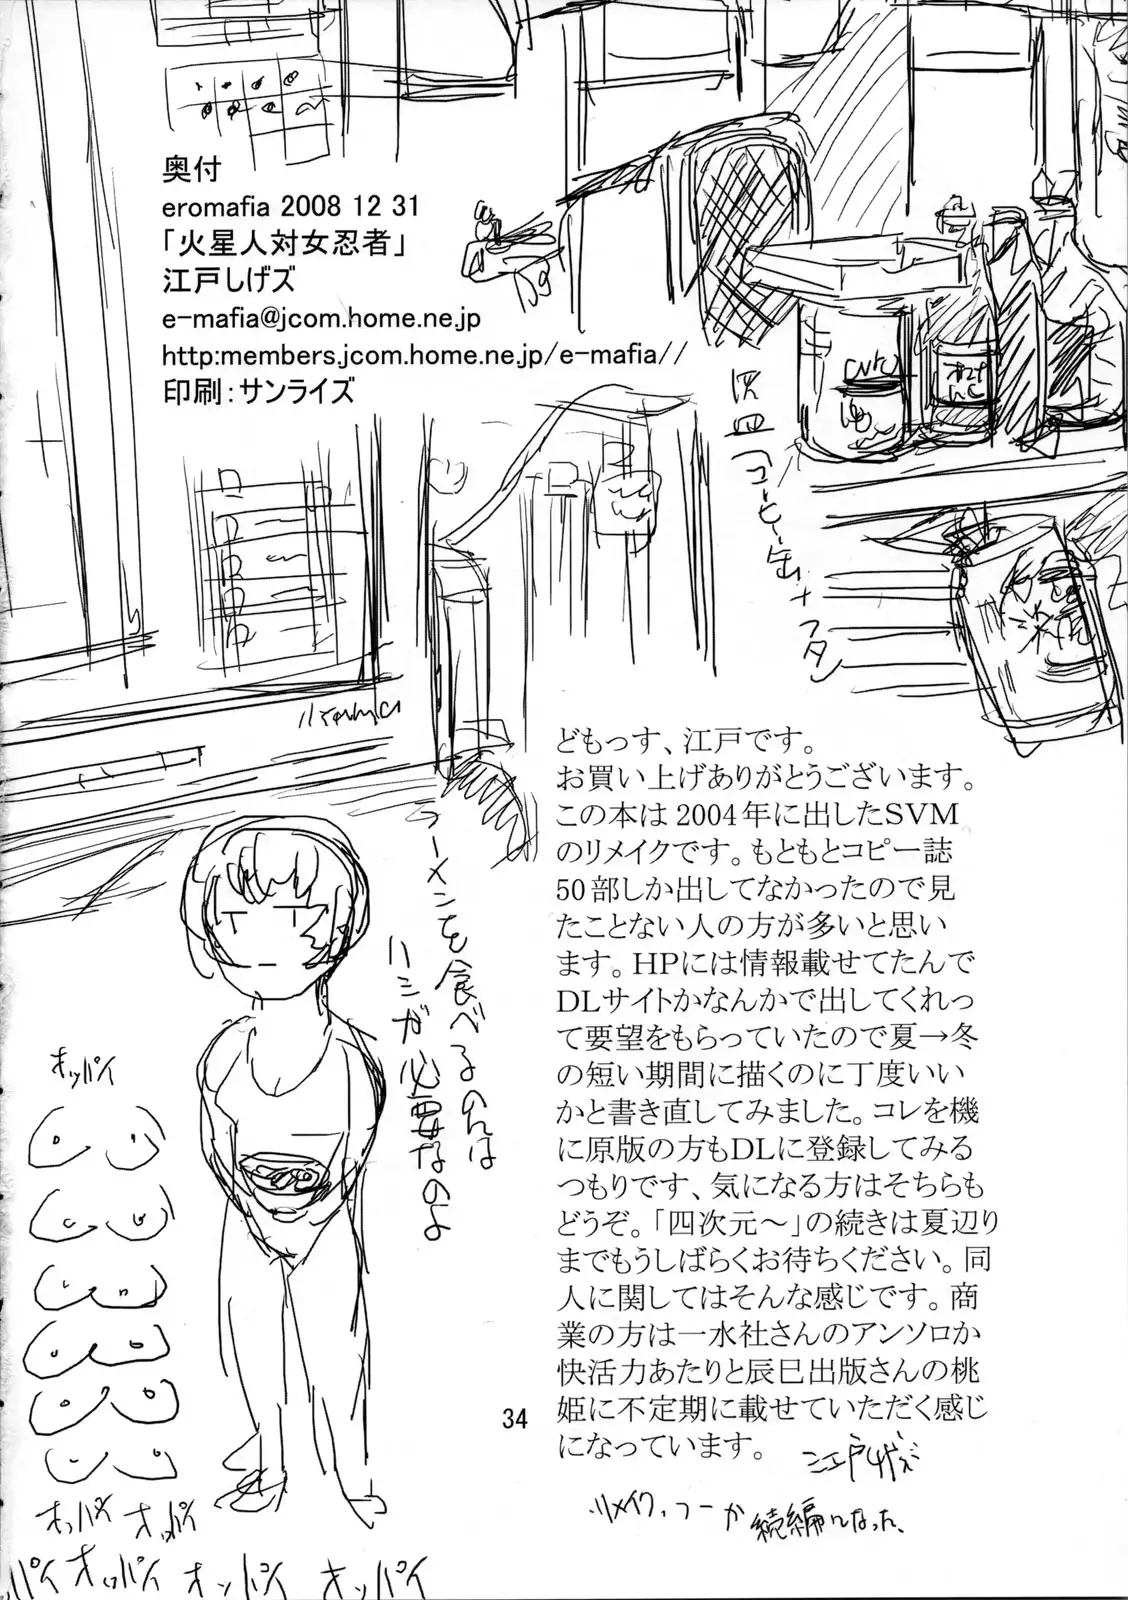 奥付
eromafia 2008 12 31
「火星人対女忍者」
江戸しげズ
e-mafia@jcom.home.ne.jp
http:members.jcom.home.ne.jp/e-mafia//
印刷：サンライズ
灰皿
コーヒー缶+フタ
どもっす、江戸です。
お買い上げありがとうございます。
この本は2004年に出したSVM
のリメイクです。もともとコピー誌
50部しか出してなかったので見
たことない人の方が多いと思い
ます。HPには情報載せてたんで
DLサイトかなんかで出してくれっ
て要望をもらっていたので夏→冬
の短い期間に描くのに丁度いい
かと書き直してみました。コレを機
に原版の方もDLに登録してみる
つもりです、気になる方はそちらも
どうぞ。「四次元～」の続きは夏辺り
までもうしばらくお待ちください。同
人に関してはそんな感じです。商
業の方は一水社さんのアンソロか
快活力あたりと辰巳出版さんの桃
姫に不定期に載せていただく感じ
になっています。
江戸しげズ
リメイク、つーか続編になった、
ラーメンを食べるのには
ハシが必要なのよ
オッパイ
オッパイ オッパイ
ッパイ オッパイ オッパイ オッパイ
34